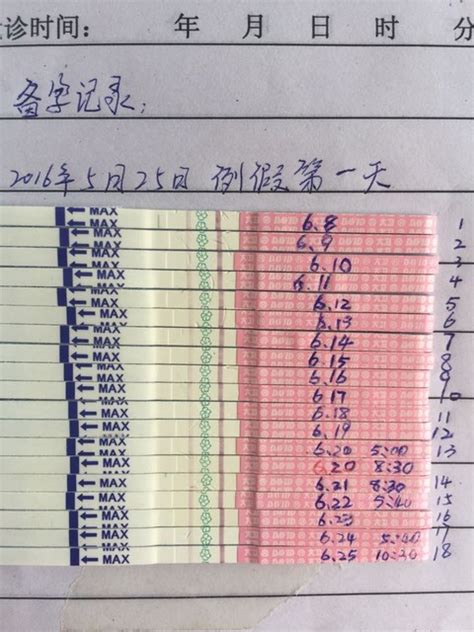 诊时间： 年 月 日 时 分
备孕记录：
2016年5月25日 例假第一天
← MAX 6.8 1
← MAX 6.9 2
← MAX 6.10 3
← MAX 6.11 4
← MAX 6.12 5
← MAX 6.13 6
← MAX 6.14 7
← MAX 6.15 8
← MAX 6.16 9
← MAX 6.17 10
← MAX 6.18 11
← MAX 6.19 12
← MAX 6.20 5:00 13
← MAX 6.20 8:30
← MAX 6.21 8:30 14
← MAX 6.22 5:40 15
← MAX 6.23 16
← MAX 6.24 5:40 17
← MAX 6.25 10:30 18